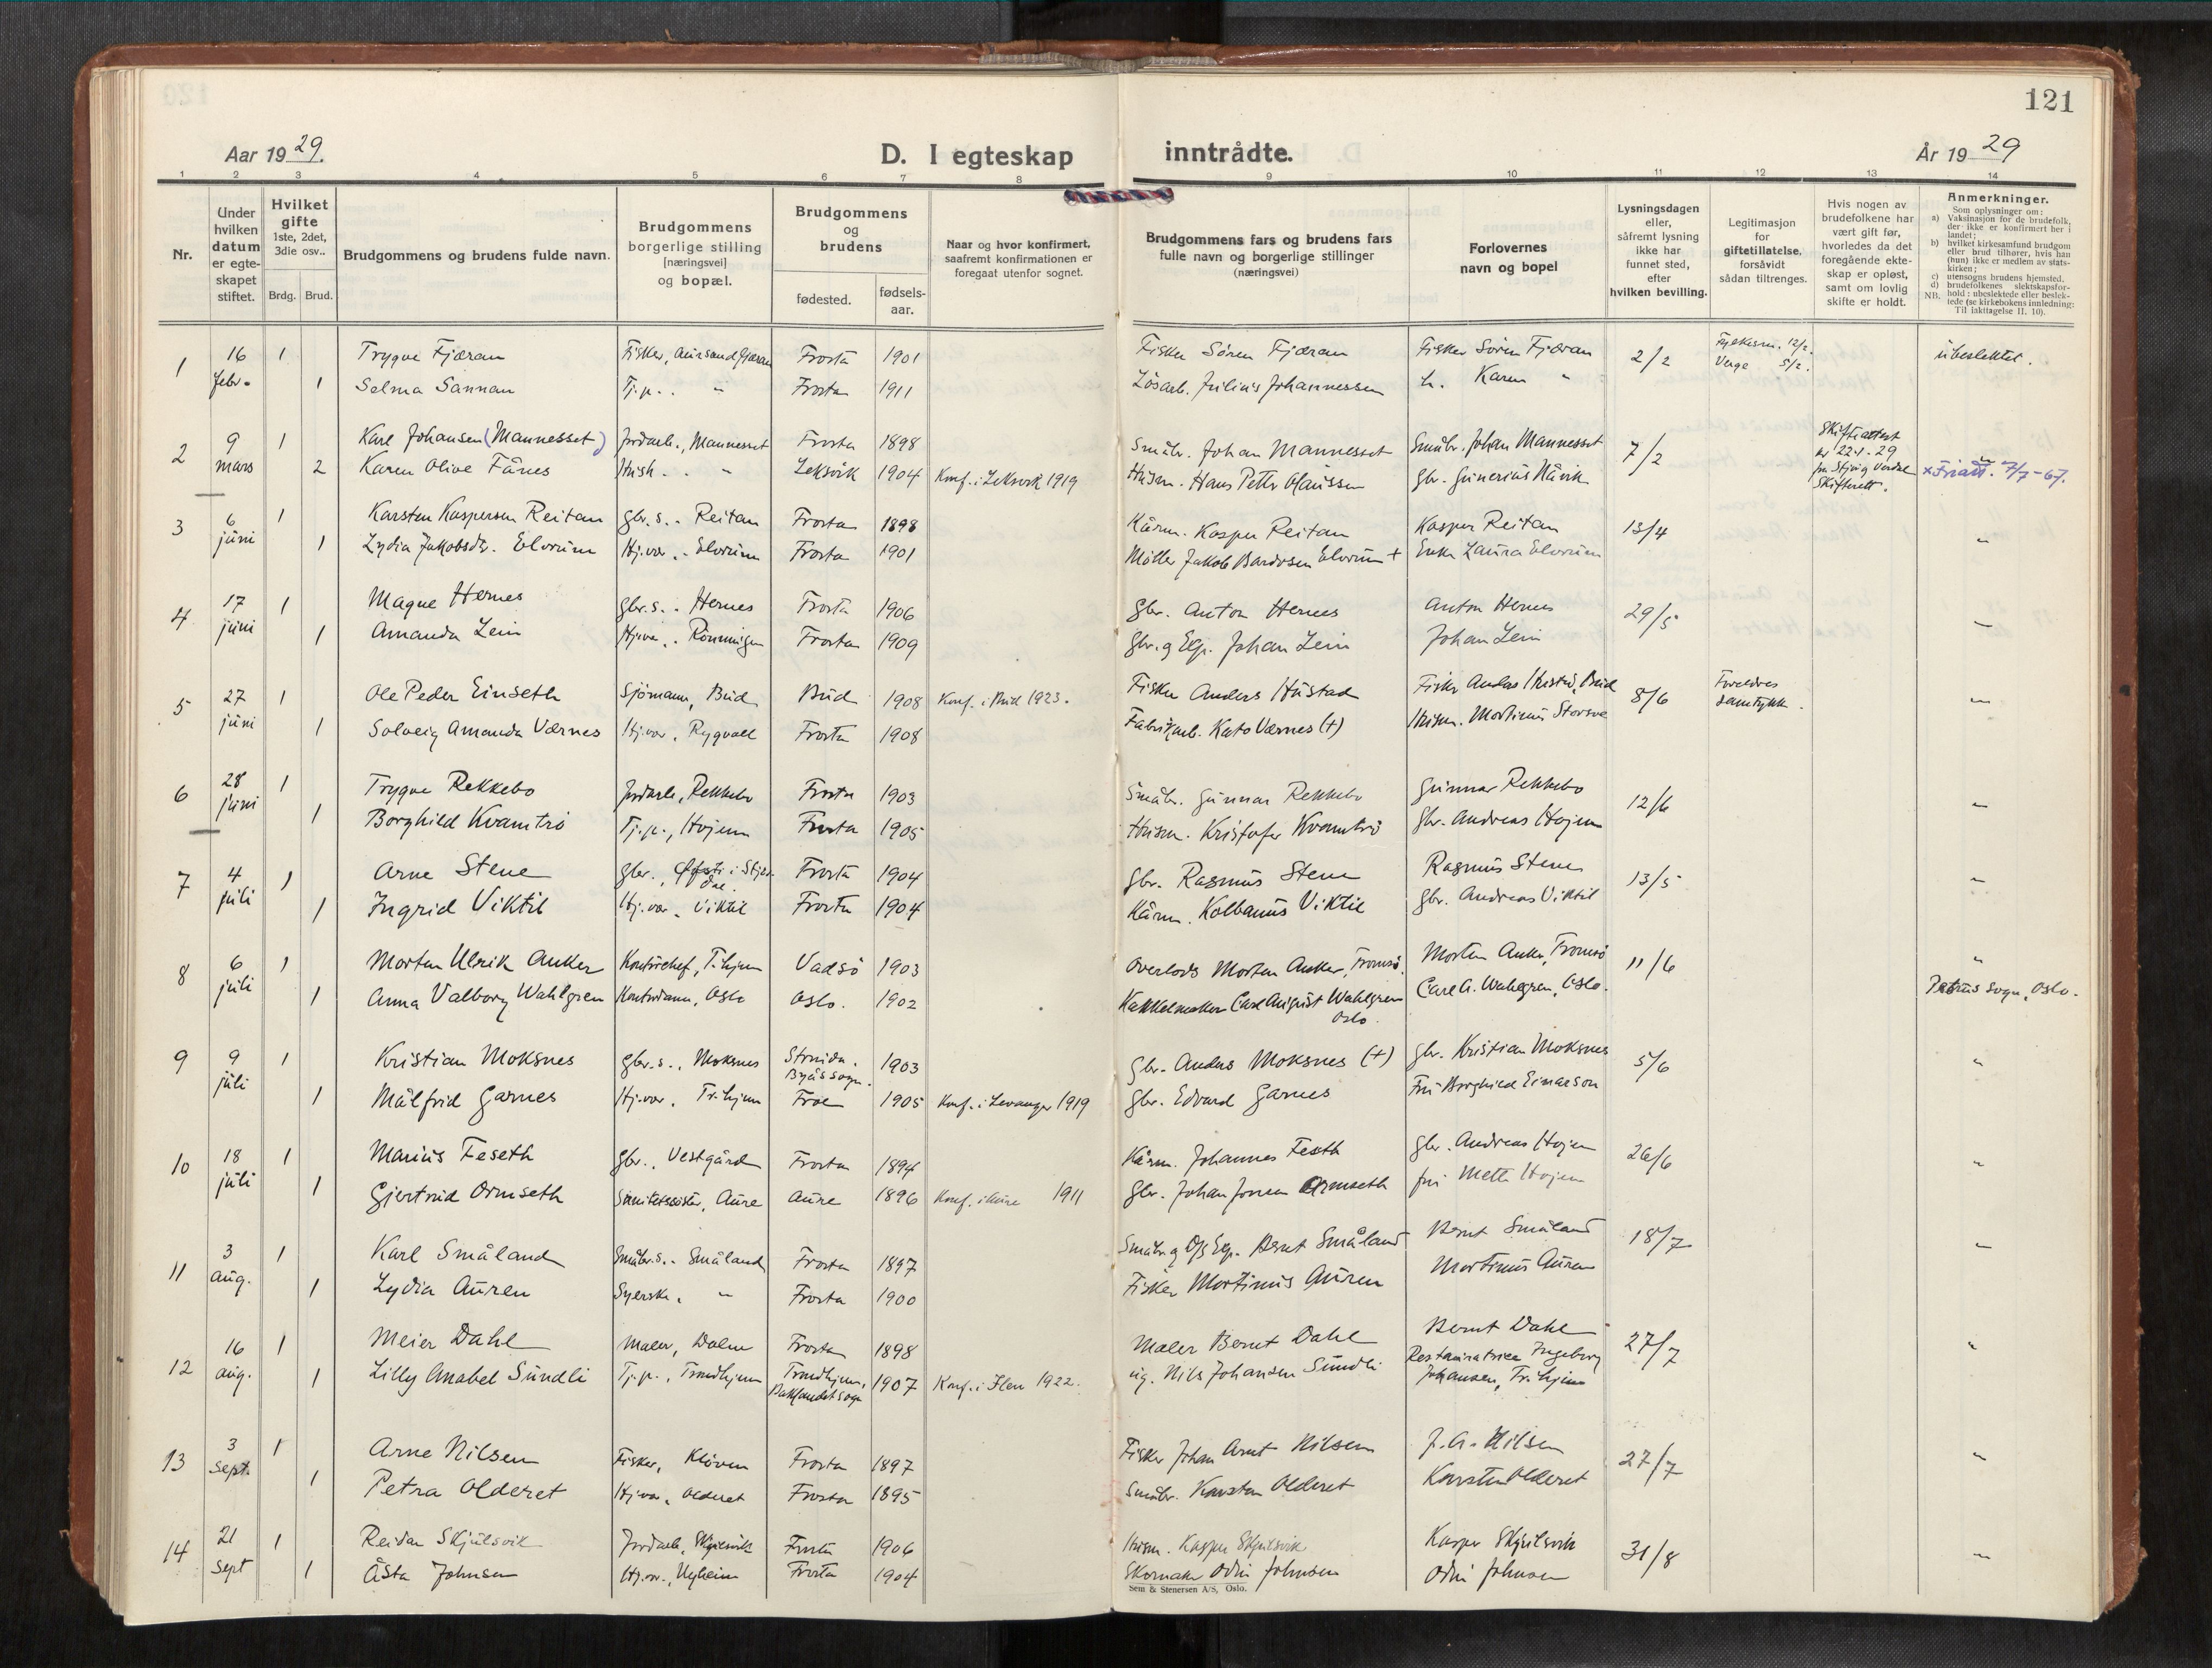 121
Aar 1929.
D. I egteskap inntrådte.
År 1929
1 2 3 4 5 6 7 8 9 10 11 12 13 14
Nr.
Under hvilken datum er egteskapet stiftet.
Hvilket gifte 1ste, 2det, 3die osv..
Brdg. Brud.
Brudgommens og brudens fulde navn.
Brudgommens borgerlige stilling [næringsvei] og bopæl.
Brudgommens og brudens
fødested. fødselsaar.
Naar og hvor konfirmert, saafremt konfirmationen er foregaat utenfor sognet.
Brudgommens fars og brudens fars fulle navn og borgerlige stillinger (næringsvei)
Forlovernes navn og bopel
Lysningsdagen eller, såfremt lysning ikke har funnet sted, efter hvilken bevilling.
Legitimasjon for giftetillatelse, forsåvidt sådan tiltrenges.
Hvis nogen av brudefolkene har vært gift før, hvorledes da det foregående ekteskap er opløst, samt om lovlig skifte er holdt.
Anmerkninger.
Som oplysninger om:
a) Vaksinasjon for de brudefolk, der ikke er konfirmert her i landet;
b) hvilket kirkesamfund brudgom eller brud tilhører, hvis han (hun) ikke er medlem av statskirken;
c) utensogns brudens hjemsted.
d) brudefolkenes slektskapsforhold: ubeslektede eller beslektede (se kirkebokens innledning:
NB. Til iakttagelse II, 10).
1 16 febr. 1 Trygve Fjæran Fisker, Aursand Fjæran Frosta 1901 Fisker Søren Fjæran Fisker Søren Fjæran 2/2 Fylkesm. 12/2. ubeslektet.
1 Selma Sannan Tj.p. " Frosta 1911 Løsarb. Julius Johannessen h. Karen " Verge 5/2.
2 9 mars 1 Karl Johansen (Mannesset) Jordarb., Mannesset Frosta 1898 Småbr. Johan Mannesset Småbr. Johan Mannesset 7/2 Skifteattest av 22-1-29 fra Stjør og Verdal Skifterett.
2 Karen Olive Fånes Hush. " Leksvik 1904 Konf. i Leksvik 1919 Husm. Hans Petter Olaussen Gbr. Gunerius Nåvik 7/7-67.
3 6 juni 1 Karsten Kaspersen Reitan Gbr.s. Reitan Frosta 1898 Kårm. Kasper Reitan Kasper Reitan 13/4 "
1 Lydia Jakobsdr. Elvrum Hj.vær. Elvrum Frosta 1901 Møller Jakob Bardosen Elvrum + Enke Laura Elvrum
4 17 juni 1 Magne Hernes Gbr.s. Hernes Frosta 1906 Gbr. Anton Hernes Anton Hernes 29/5 "
1 Amanda Lein Hj.vær. Rönningen Frosta 1909 Gbr. og Eg. Johan Lein Johan Lein
5 27 juni 1 Ole Peder Einseth Sjömann, Bud Bud 1908 Konf. i Bud 1923. Fisker Anders Hustad Fisker Anders Hustad, Bud 8/6 Foreldres samtykke. "
1 Solveig Amanda Værnes Hj.vær. Rygvoll Frosta 1908 Fabrikarb. Kato Værnes (+) Husm. Mortinus Storsve
6 28 juni 1 Trygve Rekkebo Jordarb., Rekkebo Frosta 1903 Småbr. Gunnar Rekkebo Gunnar Rekkebo 12/6 "
1 Borghild Kvamtrö Tj.p., Hojem Frosta 1905 Husm. Kristofer Kvamtrö Gbr. Andreas Hojem
7 4 juli 1 Arne Stene Gbr., Øfsti i Stjørdal Frosta 1904 Gbr. Rasmus Stene Rasmus Stene 13/5 "
1 Ingrid Viktil Hj.vær. Viktil Frosta 1904 Kårm. Kolbanus Viktil Gbr. Andreas Viktil
8 6 juli 1 Morten Ulrik Anker Kontorchef, T.hjem Vadsö 1903 Overlods Morten Anker, Tromsö. Morten Anker, Tromsö 11/6 "
1 Anna Valborg Wahlgren Kontordame, Oslo Oslo. 1902 Kakkelmaker Carl August Wahlgren Oslo. Carl A. Wahlgren, Oslo. Petrus sogn, Oslo.
9 9 juli 1 Kristian Moksnes Gbr.s., Moksnes Strinda. Byåssogn. 1903 Gbr. Anders Moksnes (+) Gbr. Kristian Moksnes 5/6 "
1 Målfrid Garnes Hj.vær. Tr.hjem 1905 Konf. i Levanger 1919 Gbr. Edvard Garnes Fru Borghild Einarson
10 18 juli 1 Marius Feseth Gbr., Vestgård Frosta 1894 Kårm. Johannes Feseth Gbr. Andreas Hojem 26/6 "
1 Gjertrud Ormseth Sanitetssöster, Aure Aure 1896 Konf. i Aure 1911 Gbr. Johan Jonsen Ormseth Fru Mette Hojem
11 3 aug. 1 Karl Småland Småbr.s. Småland Frosta 1897 Småbr. og Bernt Småland Bernt Småland 18/7 "
1 Lydia Auren Syerske. " Frosta 1900 Fisker Mortinus Auren Mortinus Auren
12 16 aug. 1 Meier Dahl Maler, Dalen Frosta 1898 Maler Bernt Dahl Bernt Dahl 27/7 "
1 Lilly Anabel Sundli Tj.p., Trondhjem Trondhjem, Baklandet sogn 1907 Konf. i Ilen 1922. Nils Johansen Sundli Restauratrice Ingeborg Johansen, Tr.hjem
13 3 sept. 1 Arne Nilsen Fisker, Klöven Frosta 1897 Fisker Johan Arnt Nilsen J. A. Nilsen 27/7 "
1 Petra Olderet Hj.vær. Olderet Frosta 1895 Småbr. Karsten Olderet Karsten Olderet
14 21 sept 1 Reidar Skjulsvik Jordarb., Skjulsvik Frosta 1906 Husm. Kasper Skjulsvik Kasper Skjulsvik 31/8 "
1 Åsta Johnsen Hj.vær., Nyheim Frosta 1904 Skomaker Odin Johnsen Odin Johnsen
Sem & Stenersen A/S, Oslo.